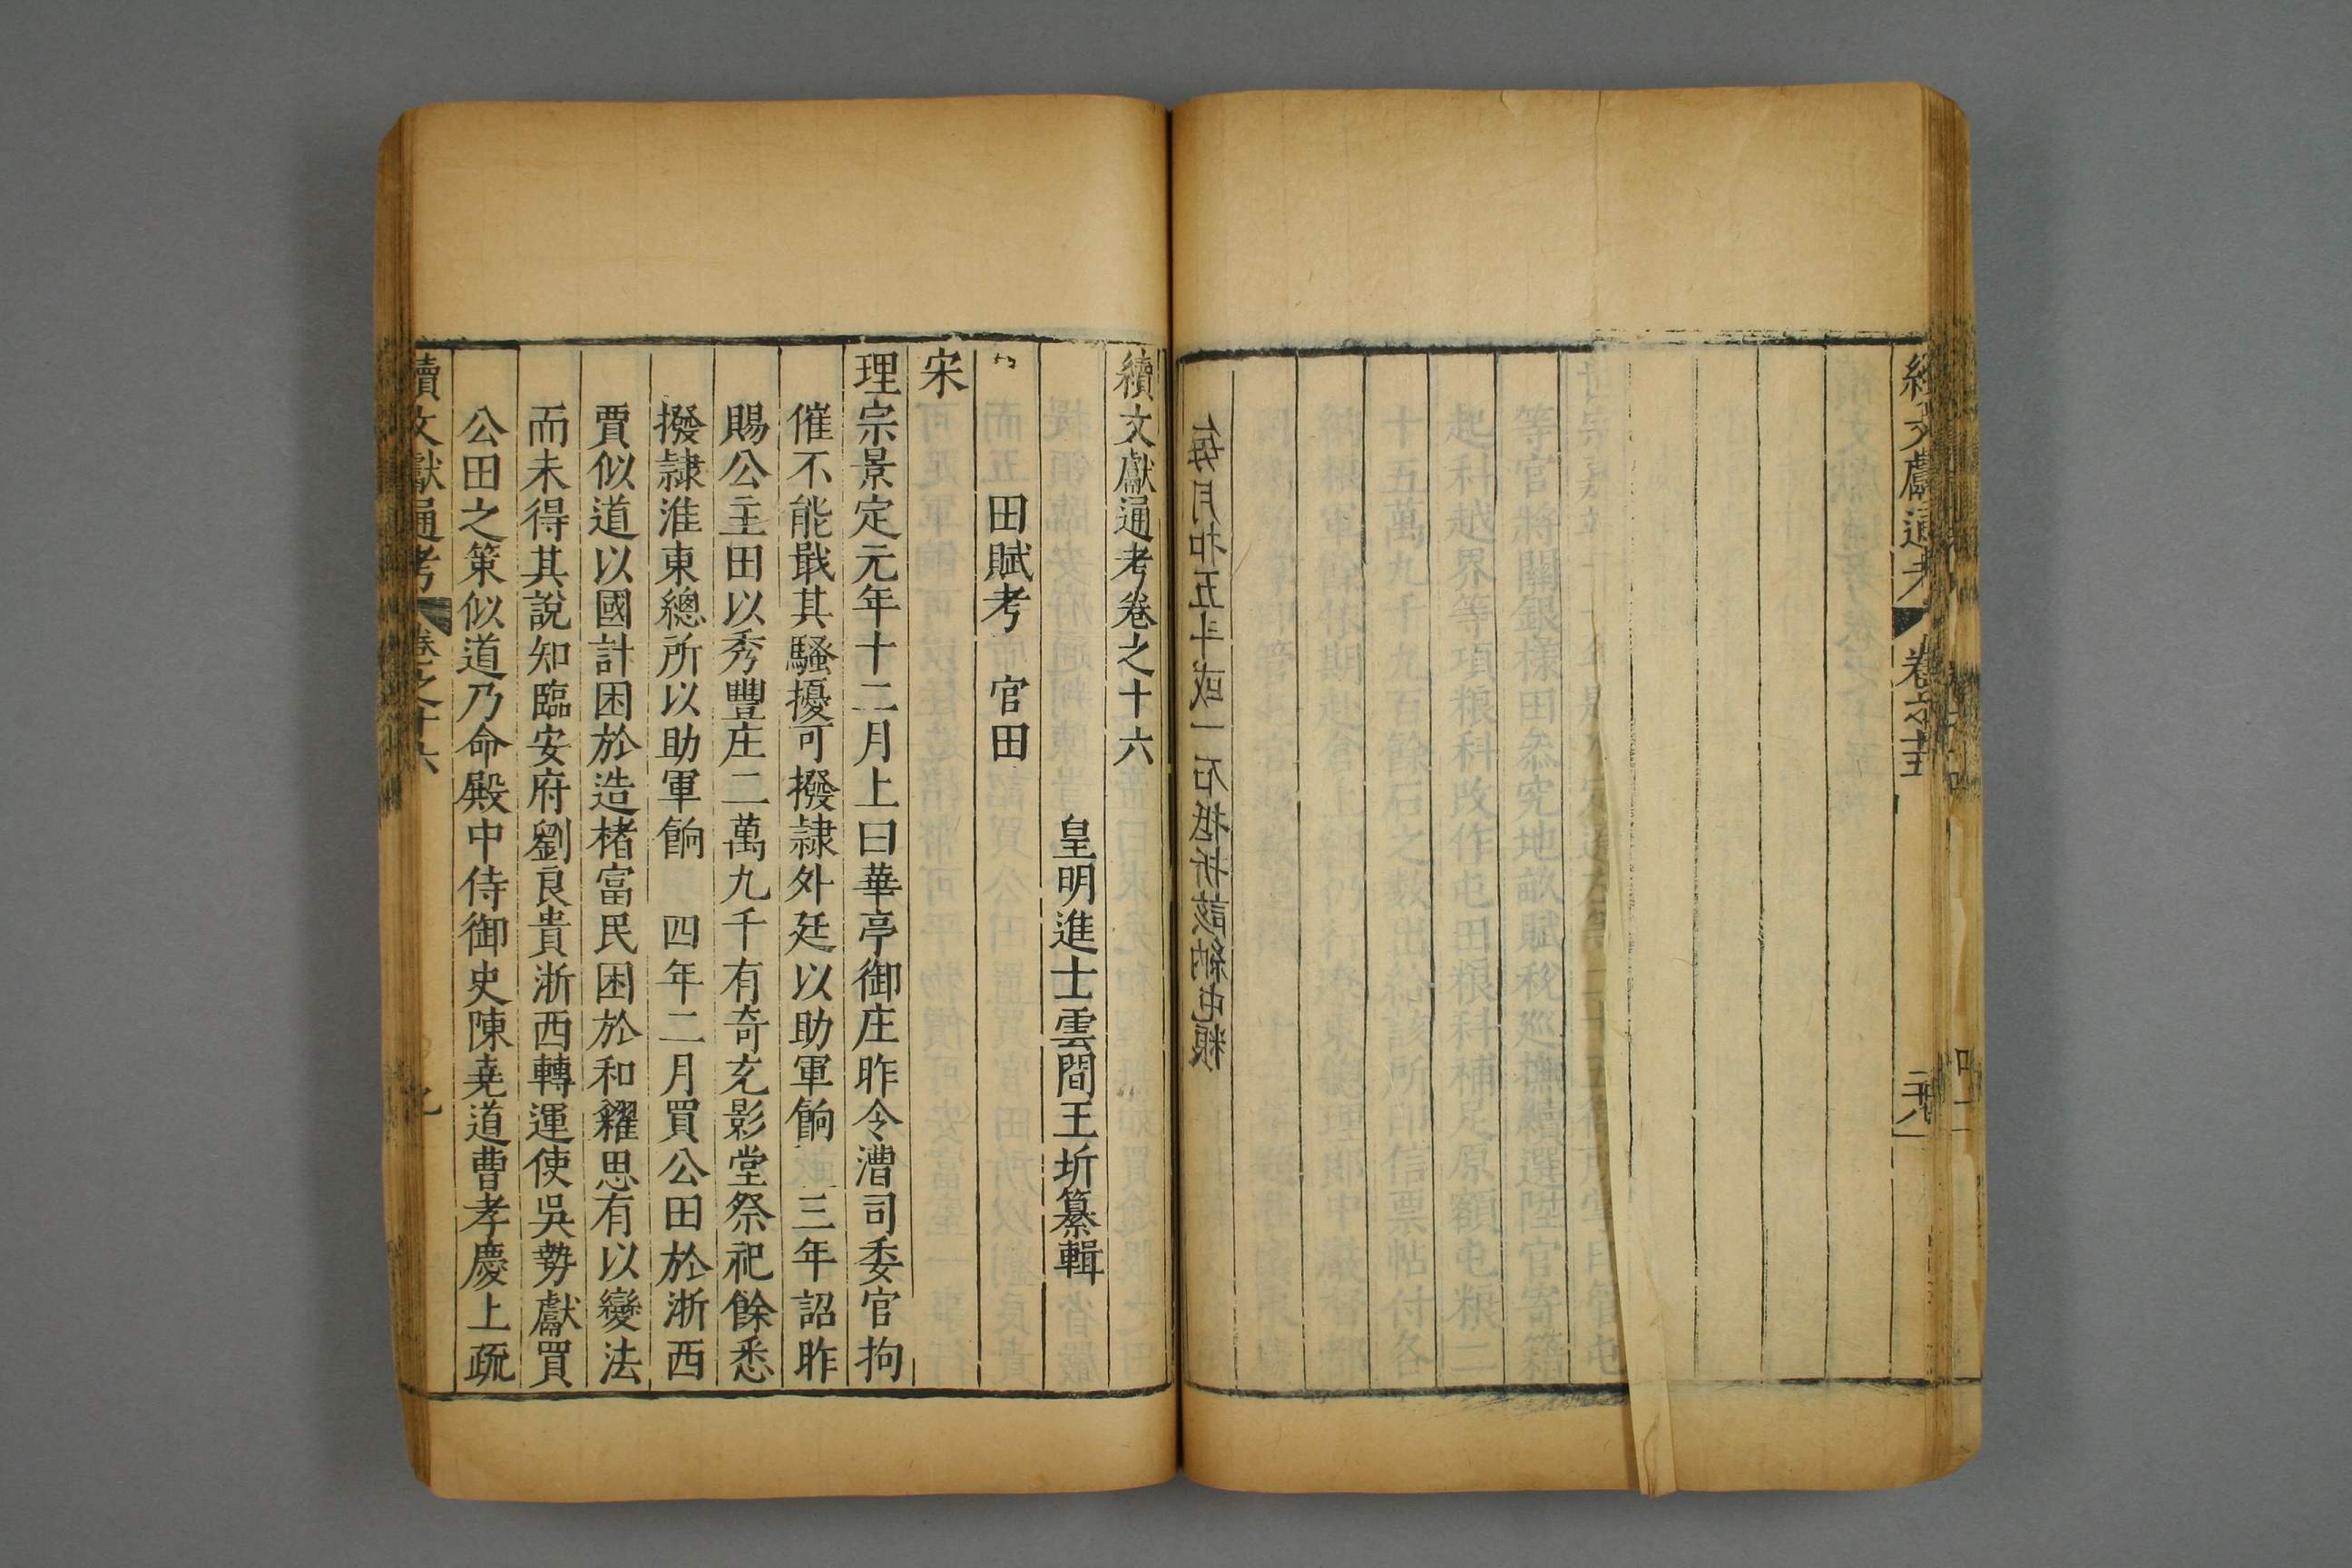 續文獻通考卷之十六
皇明進士雲間王圻纂輯
田賦考 官田
宋
理宗景定元年十二月上曰華亭御庄昨令漕司委官拘
催不能戢其騷擾可撥隷外廷以助軍餉 三年詔昨
賜公主田以秀豐庄二萬九千有奇充影堂祭祀餘悉
撥隷淮東總所以助軍餉 四年二月買公田於浙西
賈似道以國計困於造楮富民困於和糴思有以變法
而未得其說知臨安府劉良貴浙西轉運使吳勢獻買
公田之策似道乃命殿中侍御史陳堯道曹孝慶上疏
續文獻通考 卷之十六
續文獻通考 卷之十五
每月扣五斗或一石抵折該納屯粮
等官將關銀樣田叅究地畝賦稅巡撫續選陞官寄籍
起科越界等項粮科改作屯田粮科補足原額屯粮二
十五萬九千九百餘石之数出給該所印信票帖付各